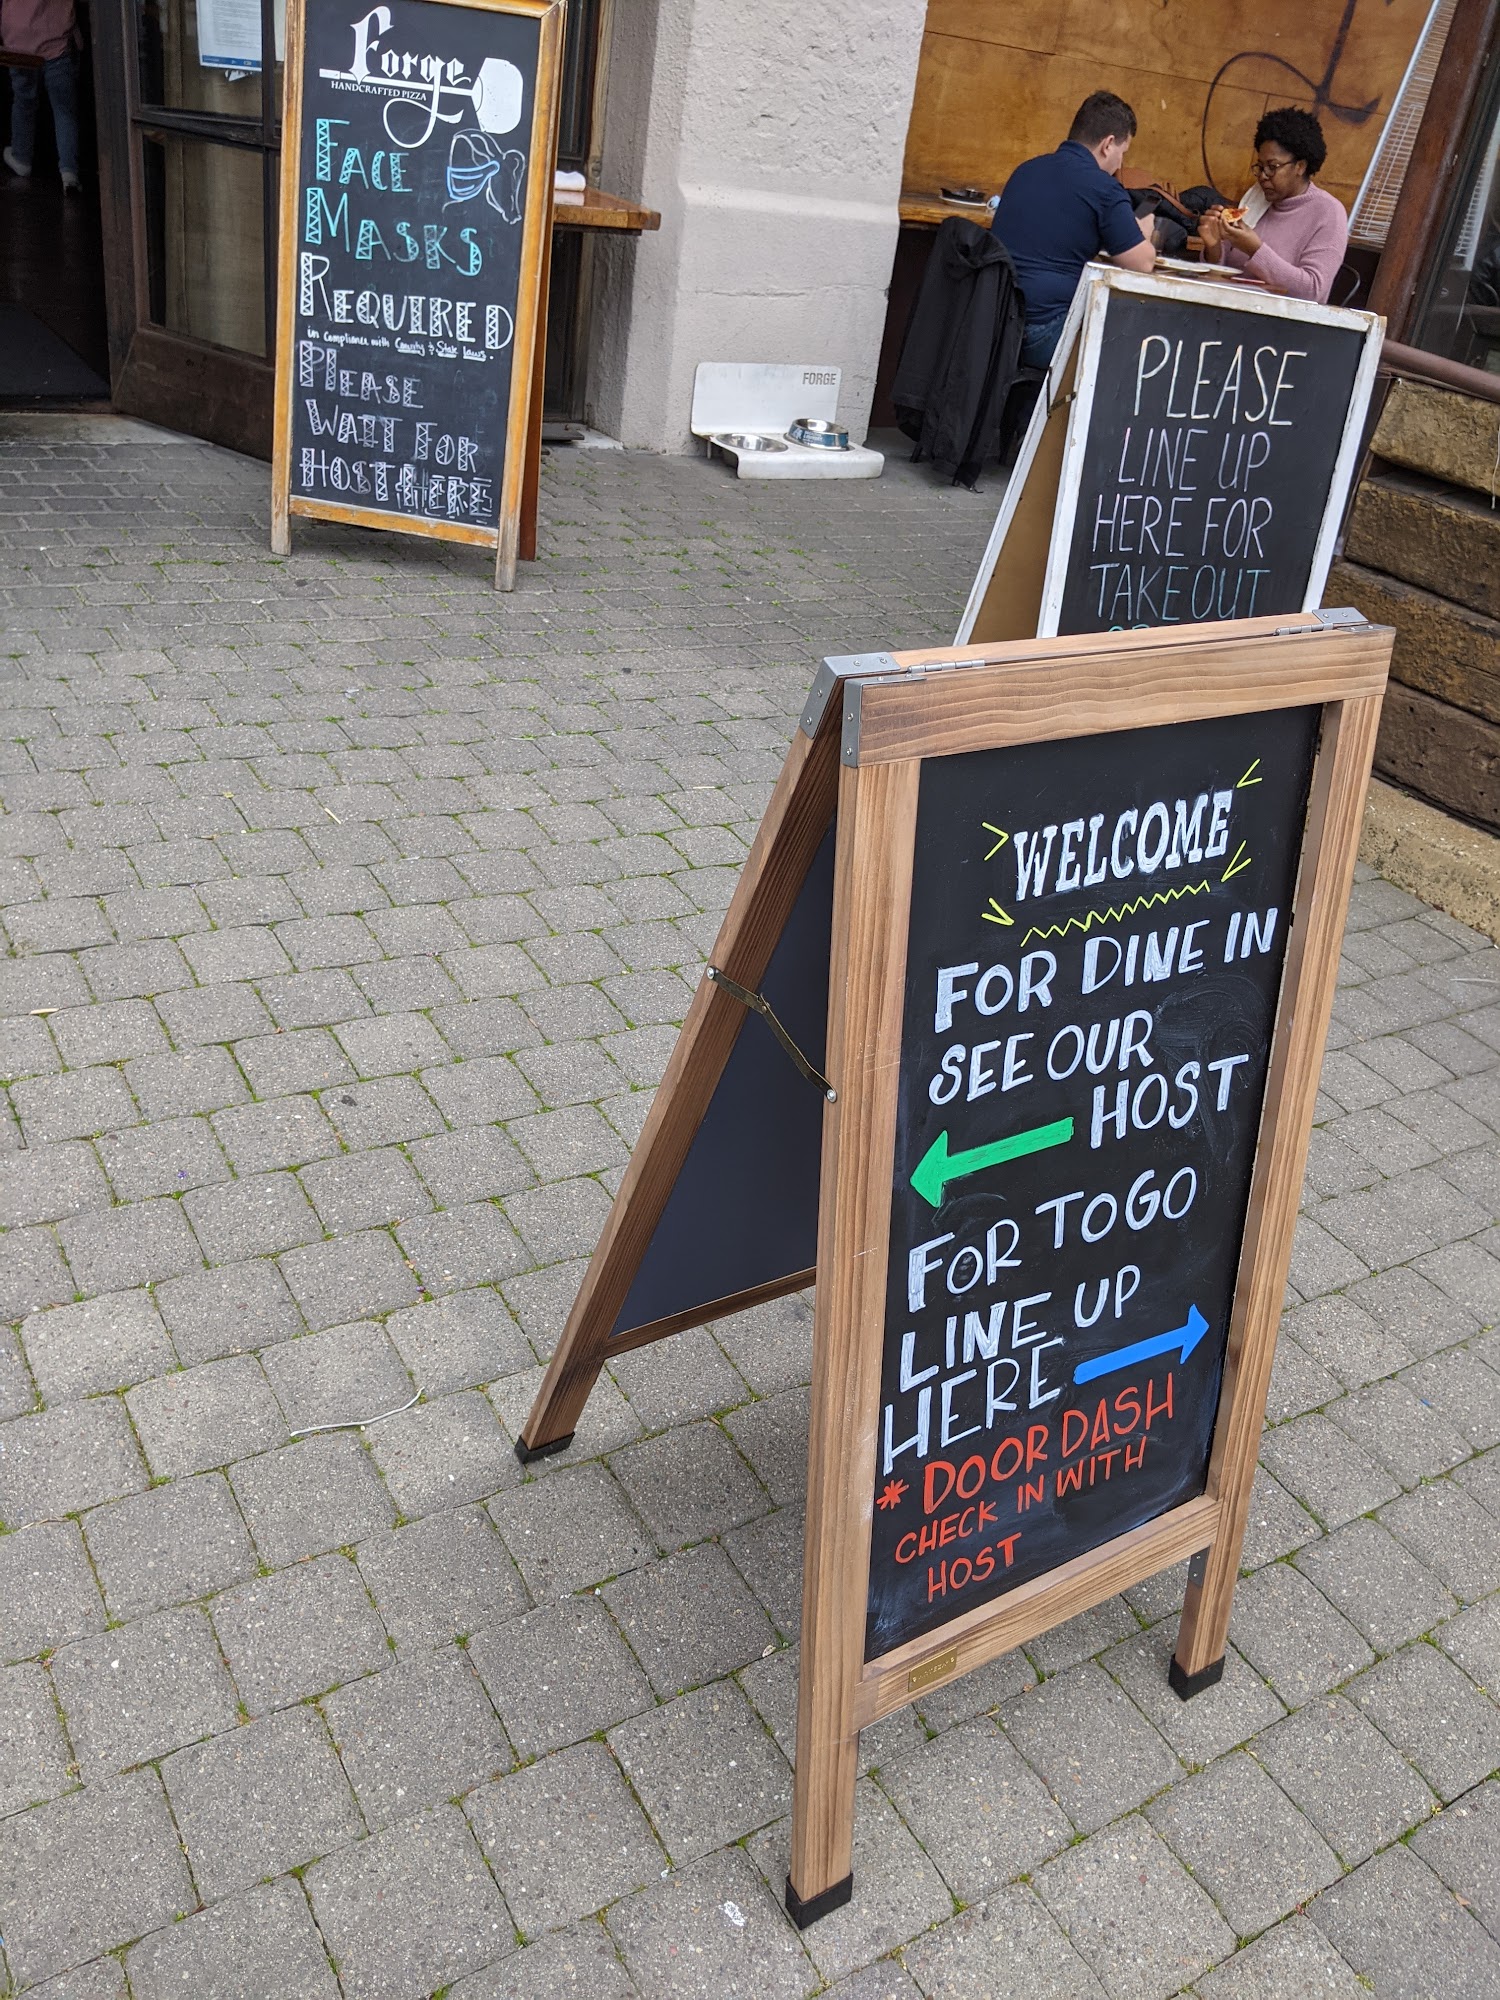 Forge
HANDCRAFTED PIZZA
FACE
MASKS
REQUIRED
in compliance with County & State Laws.
PLEASE
WAIT FOR
HOST HERE
FORGE
PLEASE
LINE UP
HERE FOR
TAKEOUT
WELCOME
FOR DINE IN
SEE OUR
HOST
FOR TOGO
LINE UP
HERE
* DOOR DASH
CHECK IN WITH
HOST